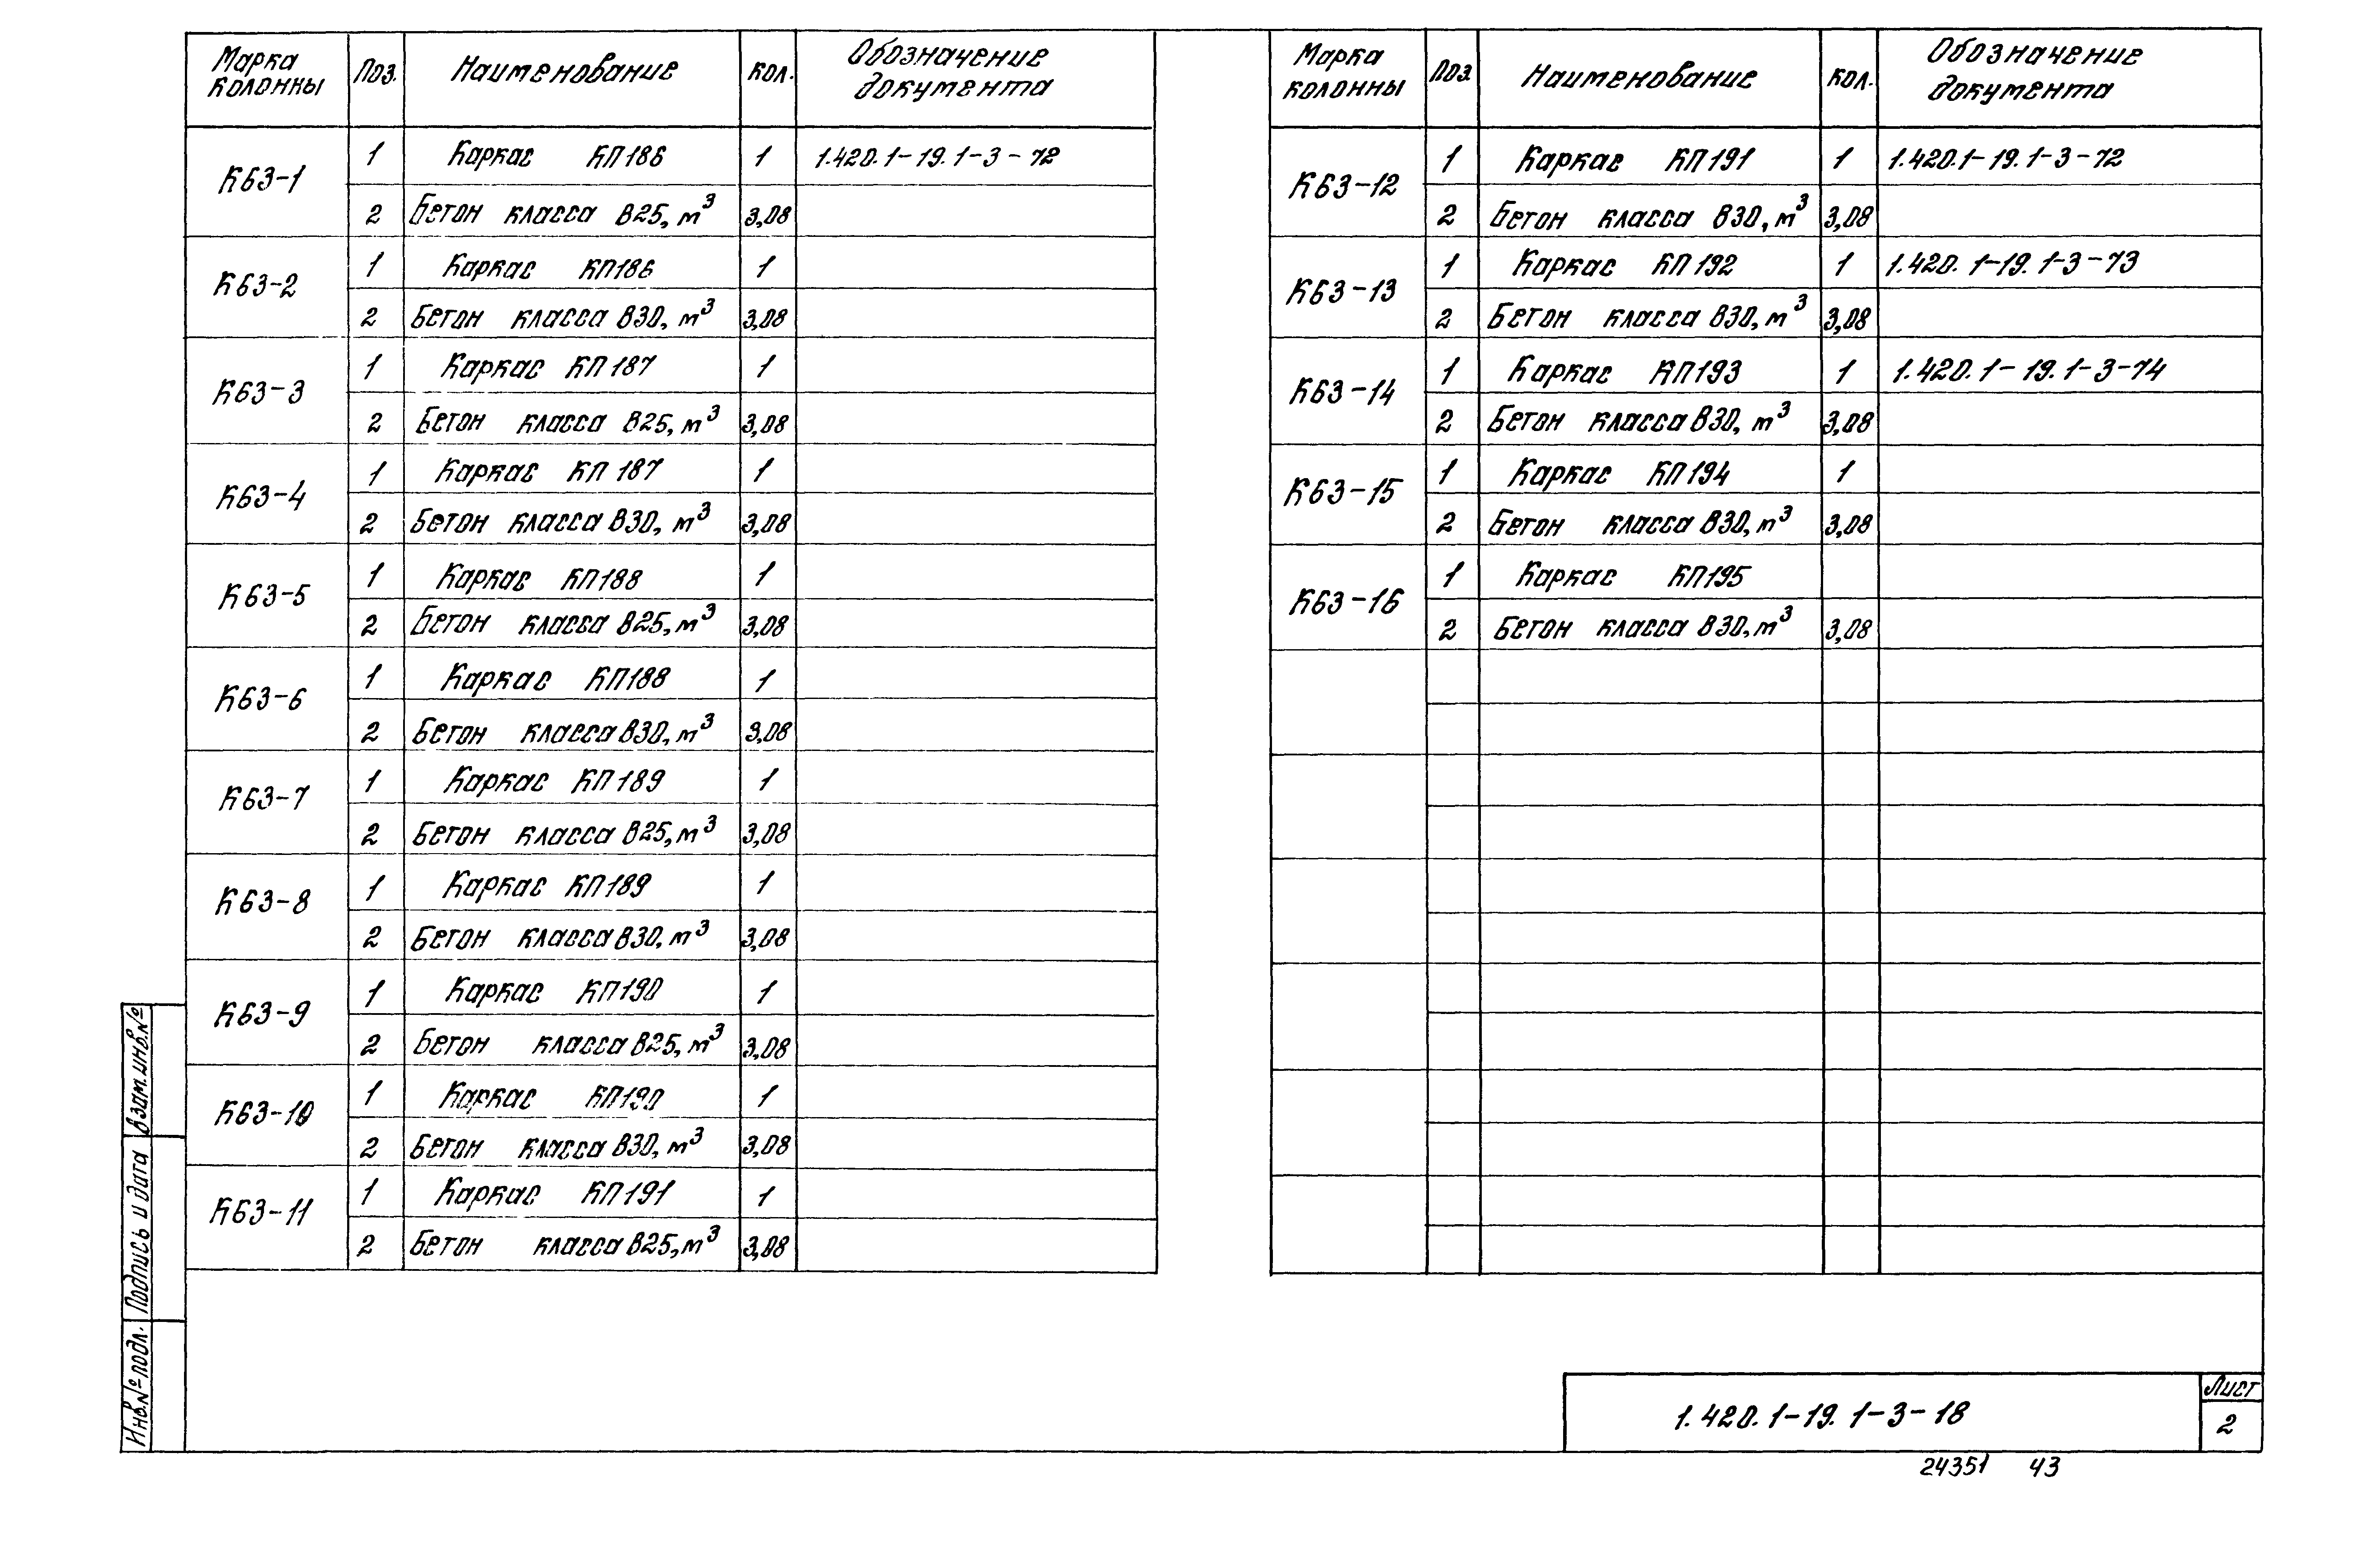 Марка колонны Поз. Наименование Кол. Обозначение документа
К63-1 1 Каркас КП186 1 1.420.1-19.1-3-72
2 Бетон класса В25, м³ 3,08
К63-2 1 Каркас КП186 1
2 Бетон класса В30, м³ 3,08
К63-3 1 Каркас КП187 1
2 Бетон класса В25, м³ 3,08
К63-4 1 Каркас КП187 1
2 Бетон класса В30, м³ 3,08
К63-5 1 Каркас КП188 1
2 Бетон класса В25, м³ 3,08
К63-6 1 Каркас КП188 1
2 Бетон класса В30, м³ 3,08
К63-7 1 Каркас КП189 1
2 Бетон класса В25, м³ 3,08
К63-8 1 Каркас КП189 1
2 Бетон класса В30, м³ 3,08
К63-9 1 Каркас КП190 1
2 Бетон класса В25, м³ 3,08
К63-10 1 Каркас КП190 1
2 Бетон класса В30, м³ 3,08
К63-11 1 Каркас КП191 1
2 Бетон класса В25, м³ 3,08
Марка колонны Поз. Наименование Кол. Обозначение документа
К63-12 1 Каркас КП191 1 1.420.1-19.1-3-72
2 Бетон класса В30, м³ 3,08
К63-13 1 Каркас КП192 1 1.420.1-19.1-3-73
2 Бетон класса В30, м³ 3,08
К63-14 1 Каркас КП193 1 1.420.1-19.1-3-74
2 Бетон класса В30, м³ 3,08
К63-15 1 Каркас КП194 1
2 Бетон класса В30, м³ 3,08
К63-16 1 Каркас КП195
2 Бетон класса В30, м³ 3,08
Взам.инв.№
Подпись и дата
Инв.№ подл.
1.420.1-19.1-3-18
Лист
2
24351 43